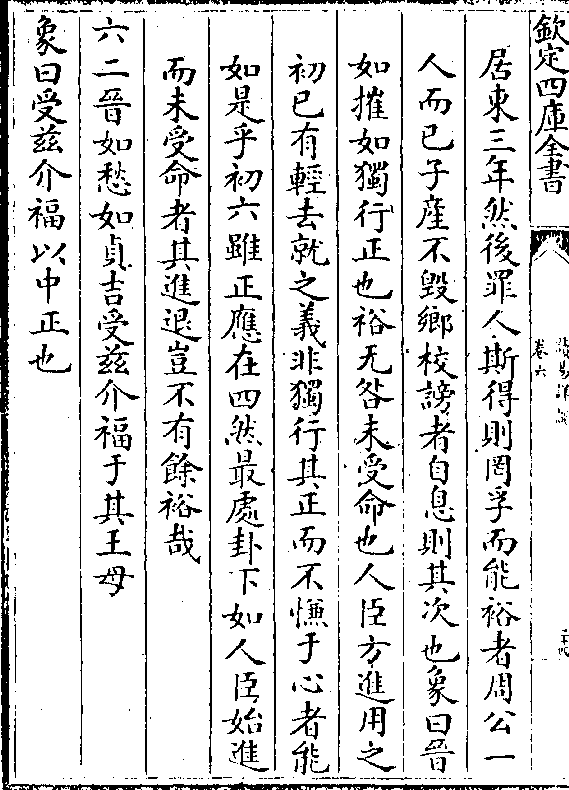 欽定四庫全書
卷六
居東三年然後罪人斯得則罔孚而能裕者周公一
人而已子產不毀鄉校謗者自息則其次也象曰晉
如摧如獨行正也裕无咎未受命也人臣方進用之
初已有輕去就之義非獨行其正而不慊于心者能
如是乎初六雖正應在四然最處卦下如人臣始進
而未受命者其進退豈不有餘裕哉
六二晉如愁如貞吉受茲介福于其王母
象曰受茲介福以中正也